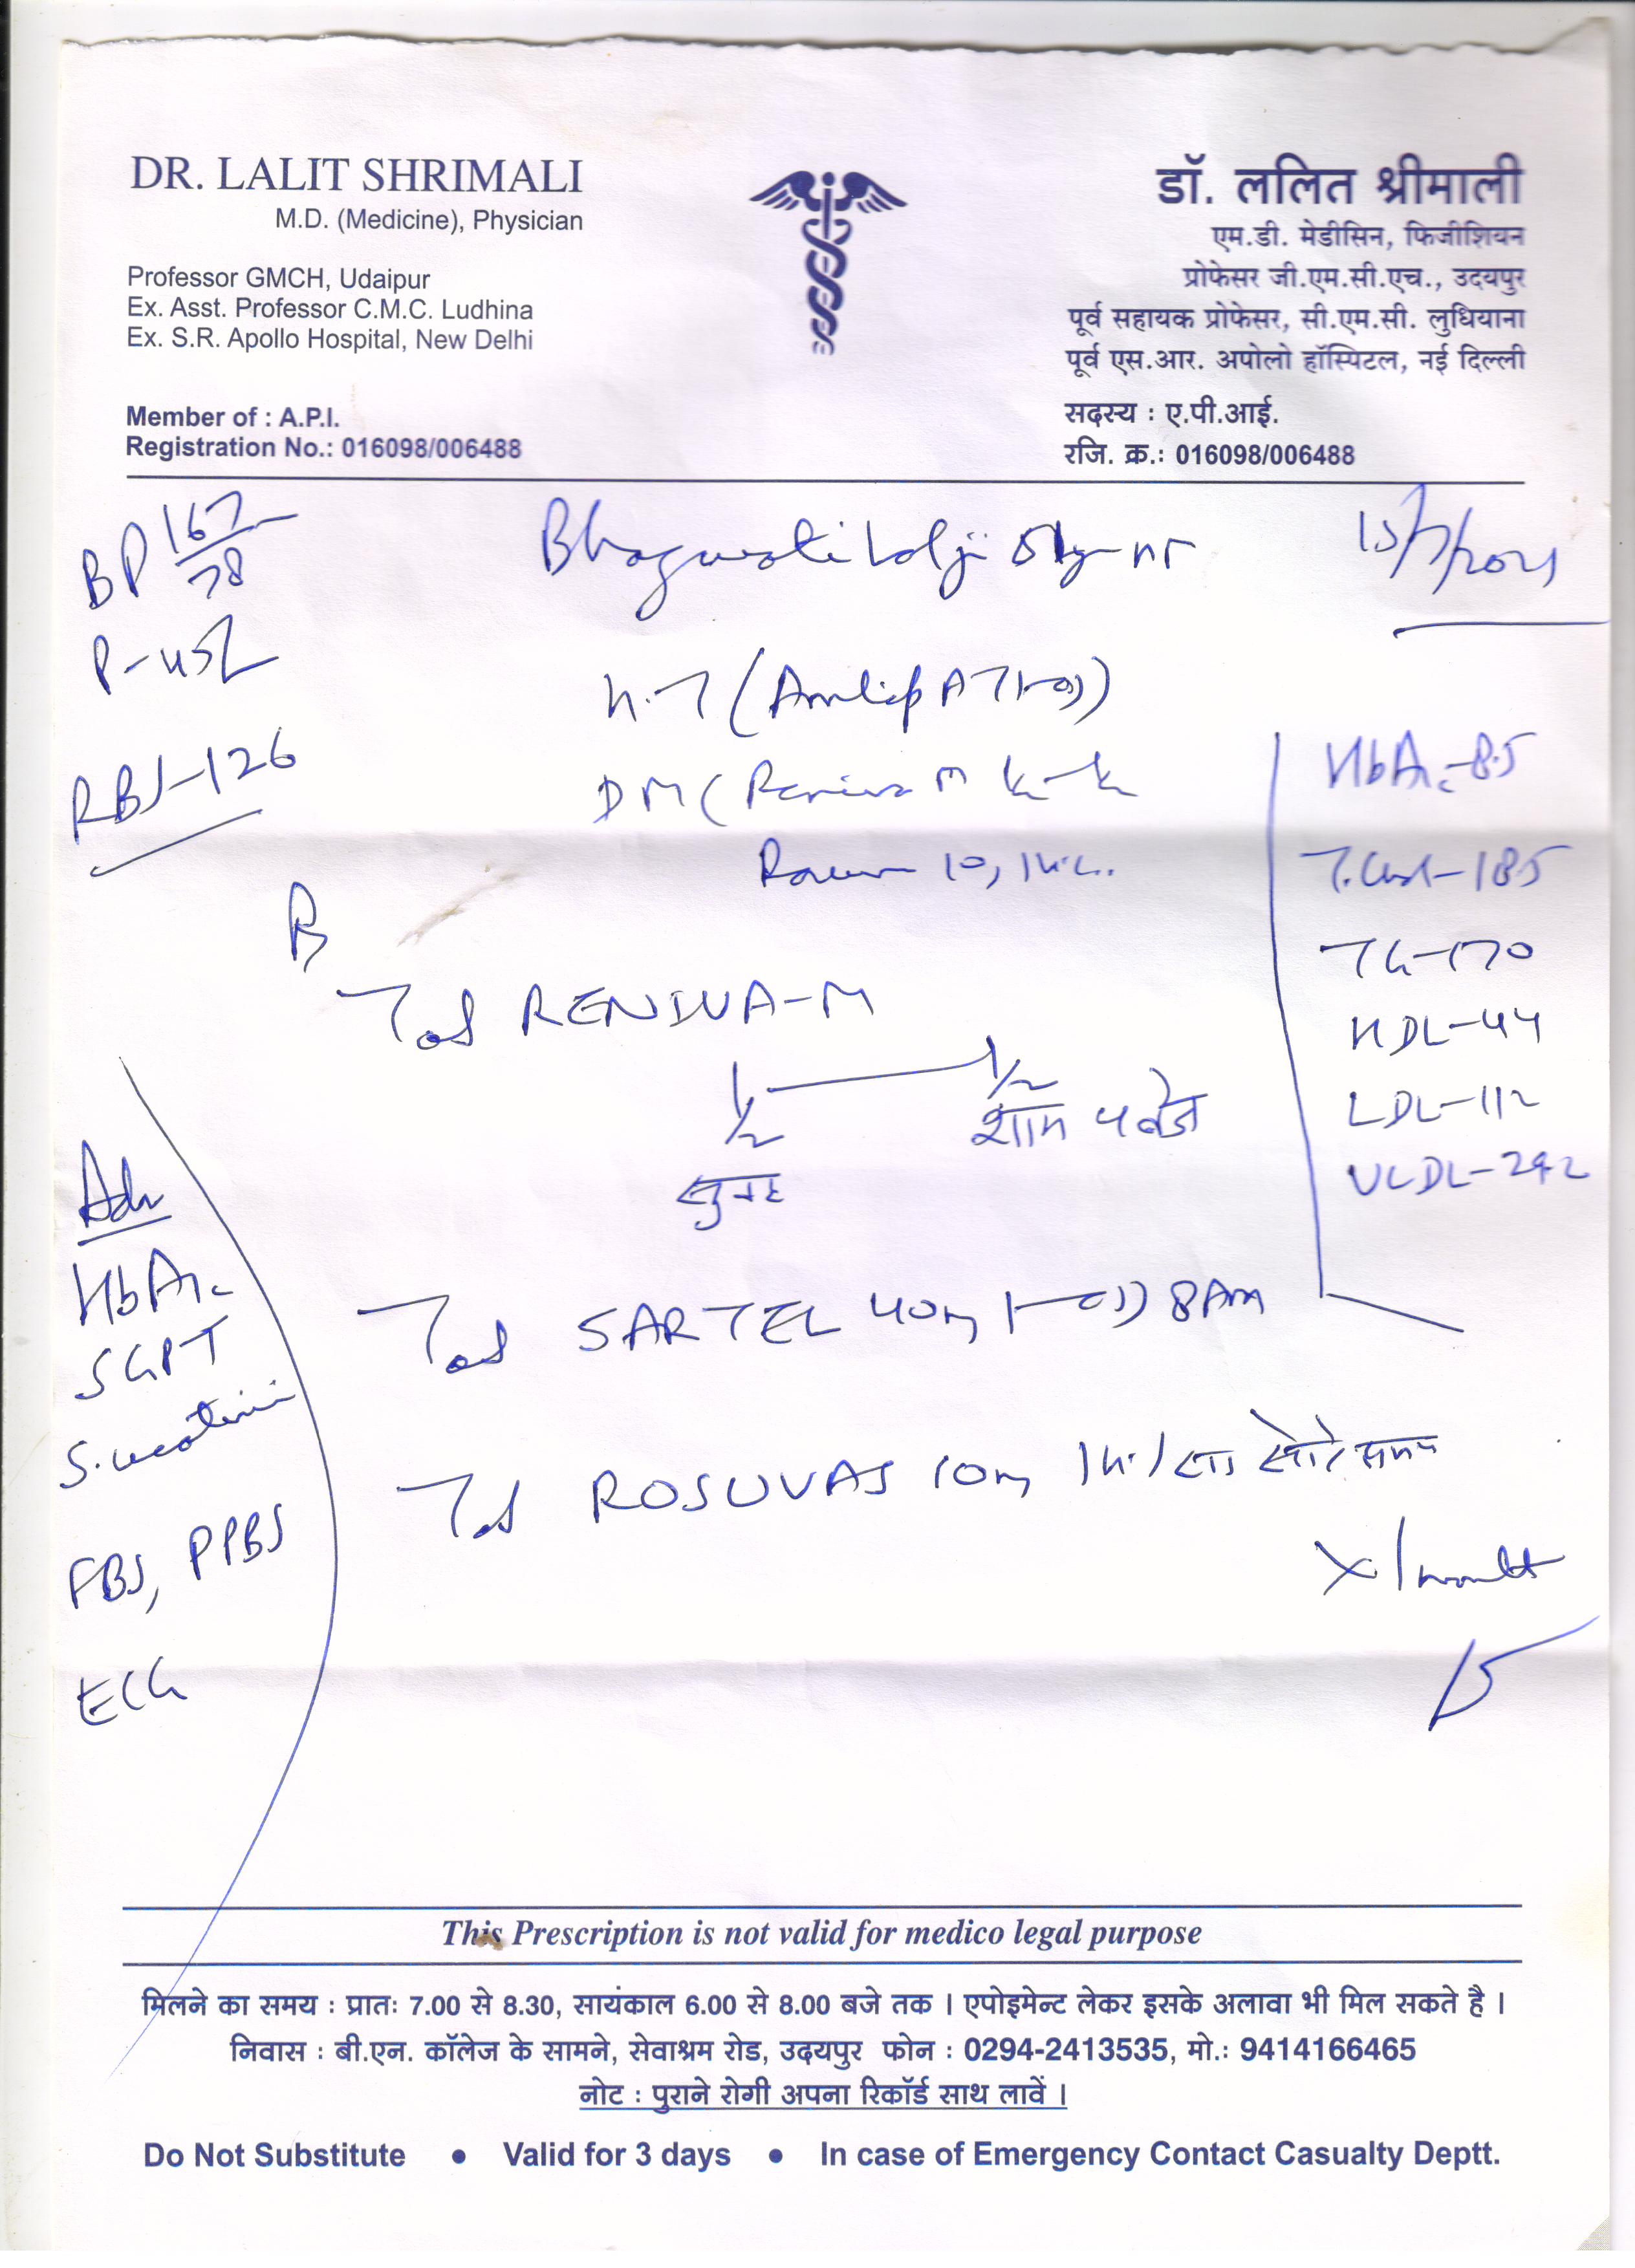 DR. LALIT SHRIMALI
M.D. (Medicine), Physician
Professor GMCH, Udaipur
Ex. Asst. Professor C.M.C. Ludhina
Ex. S.R. Apollo Hospital, New Delhi
Member of : A.P.I.
Registration No.: 016098/006488
डॉ. ललित श्रीमाली
एम.डी. मेडीसिन, फिजीशियन
प्रोफेसर जी.एम.सी.एच., उदयपुर
पूर्व सहायक प्रोफेसर, सी.एम.सी. लुधियाना
पूर्व एस.आर. अपोलो हॉस्पिटल, नई दिल्ली
सदस्य : ए.पी.आई.
रजि. क्र.: 016098/006488
BP 167/78
RBS-126
Bhagwati lalji
DM (Reniva M
HbA1c-8.5
T.Chol-185
TG-170
HDL-44
LDL-112
VLDL-
Tab RENIVA-M
1/2 1/2
सुबह शाम
Tab SARTEL 40m 8AM
Tab ROSUVAS 10m सोते समय
X 1 month
Adv
HbA1c
SGPT
S. creatinine
FBS, PPBS
ECG
This Prescription is not valid for medico legal purpose
मिलने का समय : प्रातः 7.00 से 8.30, सायंकाल 6.00 से 8.00 बजे तक । एपोइमेन्ट लेकर इसके अलावा भी मिल सकते है ।
निवास : बी.एन. कॉलेज के सामने, सेवाश्रम रोड, उदयपुर फोन : 0294-2413535, मो.: 9414166465
नोट : पुराने रोगी अपना रिकॉर्ड साथ लावें ।
Do Not Substitute • Valid for 3 days • In case of Emergency Contact Casualty Deptt.